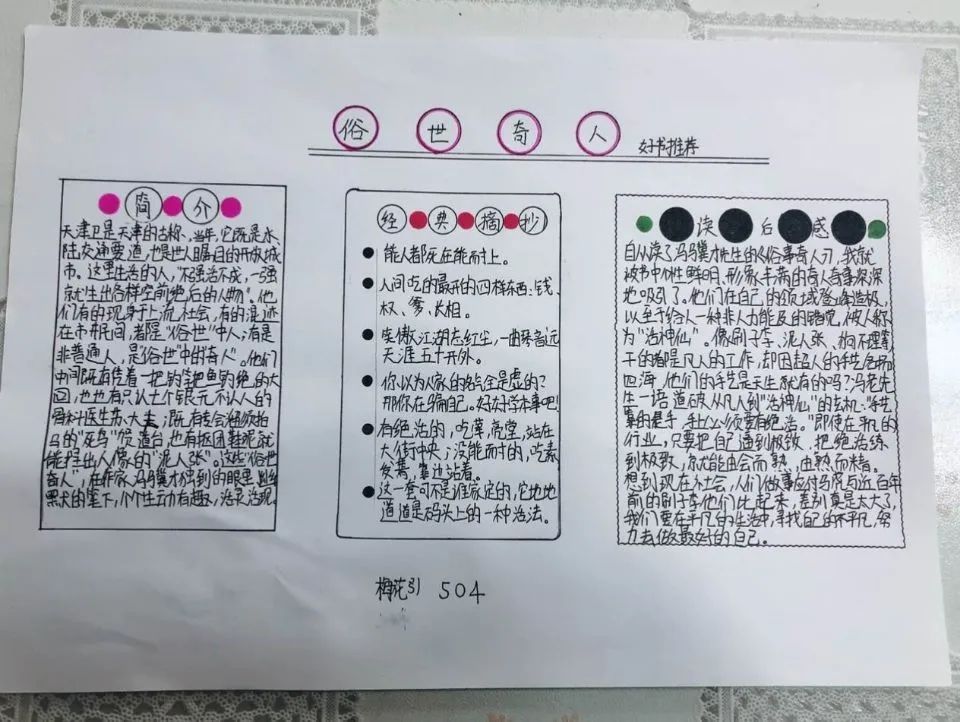 俗世奇人 好书推荐
简介
天津卫是天津的古称，当年，它既是水
陆交通要道，也是世人瞩目的开放城
市。这里生活的人，"不强活不成，一强
就生出各样空前绝后的人物"。他
们有的现身于上流社会，有的混迹
在市井民间，都是"俗世"中人；有是
非普通人，是"俗世"中的"奇人"。他们
中间既有凭着一把钓竿把鱼钓绝的大
回，也有只认七个银元不认人的
骨科医生苏大夫；既有专会溜须拍
马的"死鸟"贺道台，也有抠团鞋泥就
能捏出人像的"泥人张"。这些"俗世
奇人"，在作家冯骥才独到的眼里，幽
黑犬的笔下，个个生动有趣，活灵活现
经典摘抄
能人都死在能耐上。
人间吃的最开的四样东西：钱、
权、爹、长相。
笑傲江湖左红尘，一曲来音远
天涯五十开外。
你以为人家的名气全是虚的？
那你在骗自己。好好学本事吧！
有绝活的，吃荤，亮堂，站在
大街中央；没能耐的，吃素，
发蔫，靠边站着。
这一套可不是谁家定的，它地地
道道是码头上的一种活法。
读后感
自从读了冯骥才先生的《俗事奇人》，我就
被书中个性鲜明、形象丰满的奇人奇事深深
地吸引了。他们在自己的领域登峰造极，
以至于给人一种非人力能及的错觉，被人称
为"活神仙"。像刷子李、泥人张、狗不理等
干的都是凡人的工作，却因超人的手艺名扬
四海，他们的手艺是天生就有的吗？冯老先
生一语道破从凡人到"活神仙"的玄机："手艺
道的是手，手上必须要有绝活。"即使在平凡的
行业，只要把自己逼到极致，把绝活练
到极致，就能由会而熟、由熟而精。
想到现在社会，人们做事应付马虎与近百年
前的刷子李他们比起来，差别真是太大了，
我们要在平凡的生活中，寻找自己的不平凡，努
力去做最好的自己。
梅花引 504